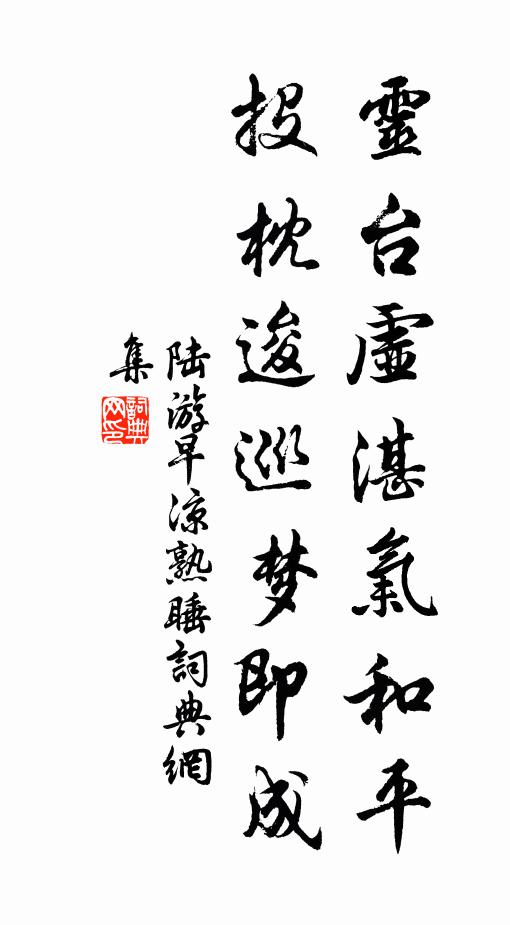 靈台虛湛氣和平
投枕逡巡梦即成
陆游早凉熟睡詞典網
集
詞典网印